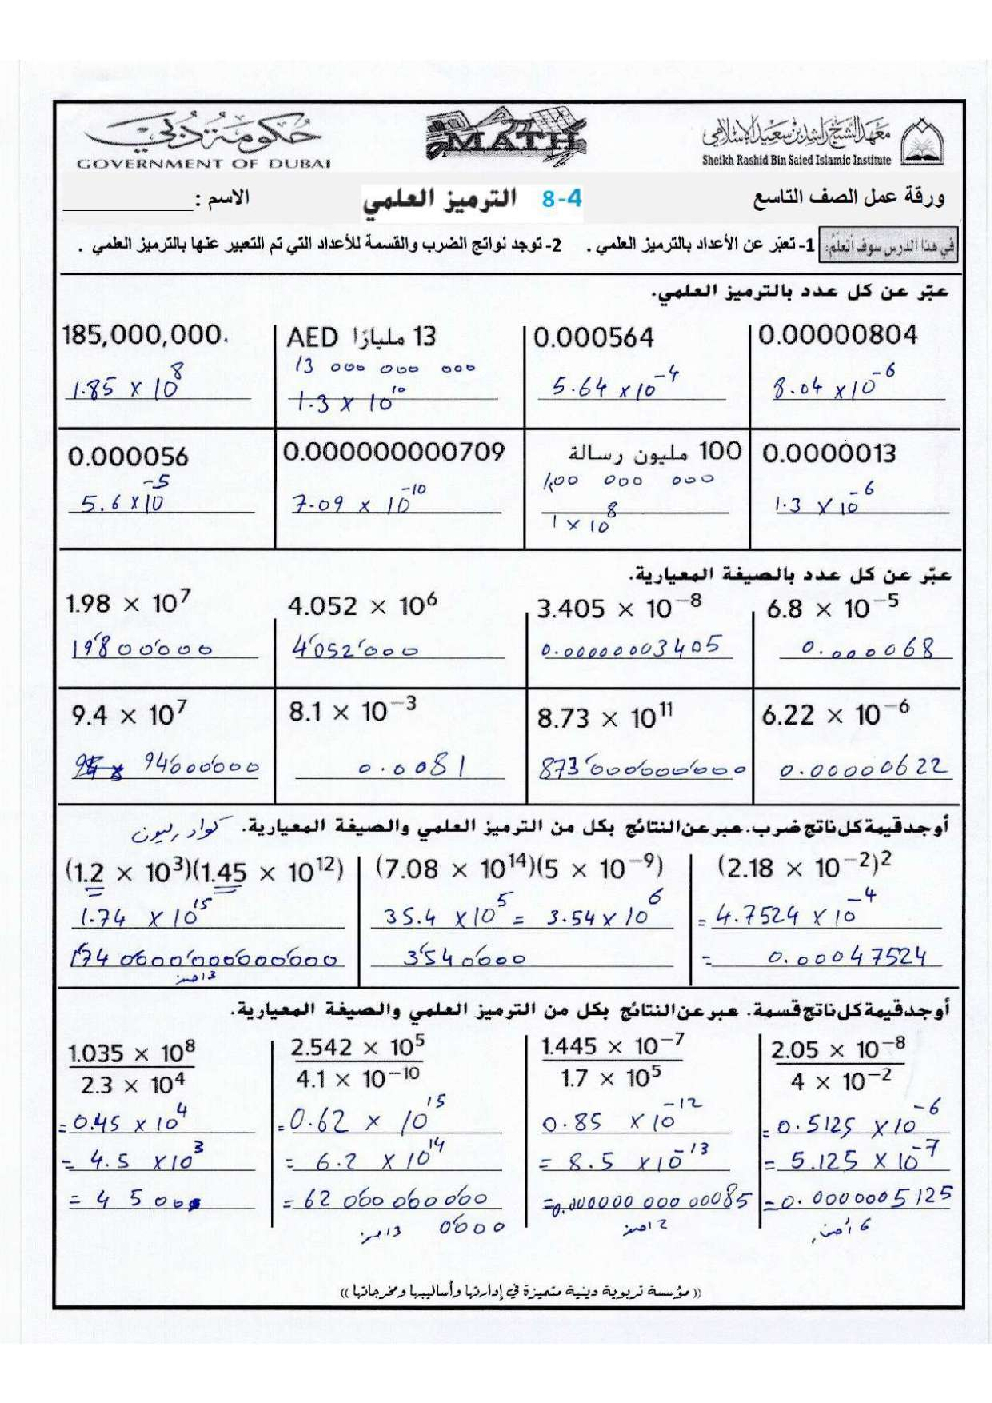 حكومة دبي
GOVERNMENT OF DUBAI
MATH
معهد الشيخ راشد بن سعيد الإسلامي
Sheikh Rashid Bin Saied Islamic Institute
ورقة عمل الصف التاسع 8-4 الترميز العلمي الاسم : ____________
في هذا الدرس سوف أتعلّم: 1- تعبّر عن الأعداد بالترميز العلمي . 2- توجد نواتج الضرب والقسمة للأعداد التي تم التعبير عنها بالترميز العلمي .
عبّر عن كل عدد بالترميز العلمي.
185,000,000. AED 13 مليارًا 0.000564 0.00000804
13 000 000 000
1.85 x 10⁸ 1.3 x 10¹⁰ 5.64 x 10⁻⁴ 8.04 x 10⁻⁶
0.000056 0.000000000709 100 مليون رسالة 0.0000013
100 000 000
5.6 x 10⁻⁵ 7.09 x 10⁻¹⁰ 1 x 10⁸ 1.3 x 10⁻⁶
عبّر عن كل عدد بالصيغة المعيارية.
1.98 × 10⁷ 4.052 × 10⁶ 3.405 × 10⁻⁸ 6.8 × 10⁻⁵
19'800'000 4'052'000 0.00000003405 0.000068
9.4 × 10⁷ 8.1 × 10⁻³ 8.73 × 10¹¹ 6.22 × 10⁻⁶
94'000'000 0.0081 873'000'000'000 0.00000622
أوجد قيمة كل ناتج ضرب. عبر عن النتائج بكل من الترميز العلمي والصيغة المعيارية.
(1.2 × 10³)(1.45 × 10¹²) (7.08 × 10¹⁴)(5 × 10⁻⁹) (2.18 × 10⁻²)²
1.74 x 10¹⁵ 35.4 x 10⁵ = 3.54 x 10⁶ = 4.7524 x 10⁻⁴
1'740'000'000'000'000 3'540'000 = 0.00047524
أوجد قيمة كل ناتج قسمة. عبر عن النتائج بكل من الترميز العلمي والصيغة المعيارية.
1.035 × 10⁸ 2.542 × 10⁵ 1.445 × 10⁻⁷ 2.05 × 10⁻⁸
2.3 × 10⁴ 4.1 × 10⁻¹⁰ 1.7 × 10⁵ 4 × 10⁻²
= 0.45 x 10⁴ = 0.62 x 10¹⁵ 0.85 x 10⁻¹² = 0.5125 x 10⁻⁶
= 4.5 x 10³ = 6.2 x 10¹⁴ = 8.5 x 10⁻¹³ = 5.125 x 10⁻⁷
= 4 5 000 = 62 000 000 000 = 0.000000 000 00085 = 0.0000005125
0'000
(( مؤسسة تربوية دينية متميزة في إدارتها وأساليبها ومخرجاتها ))